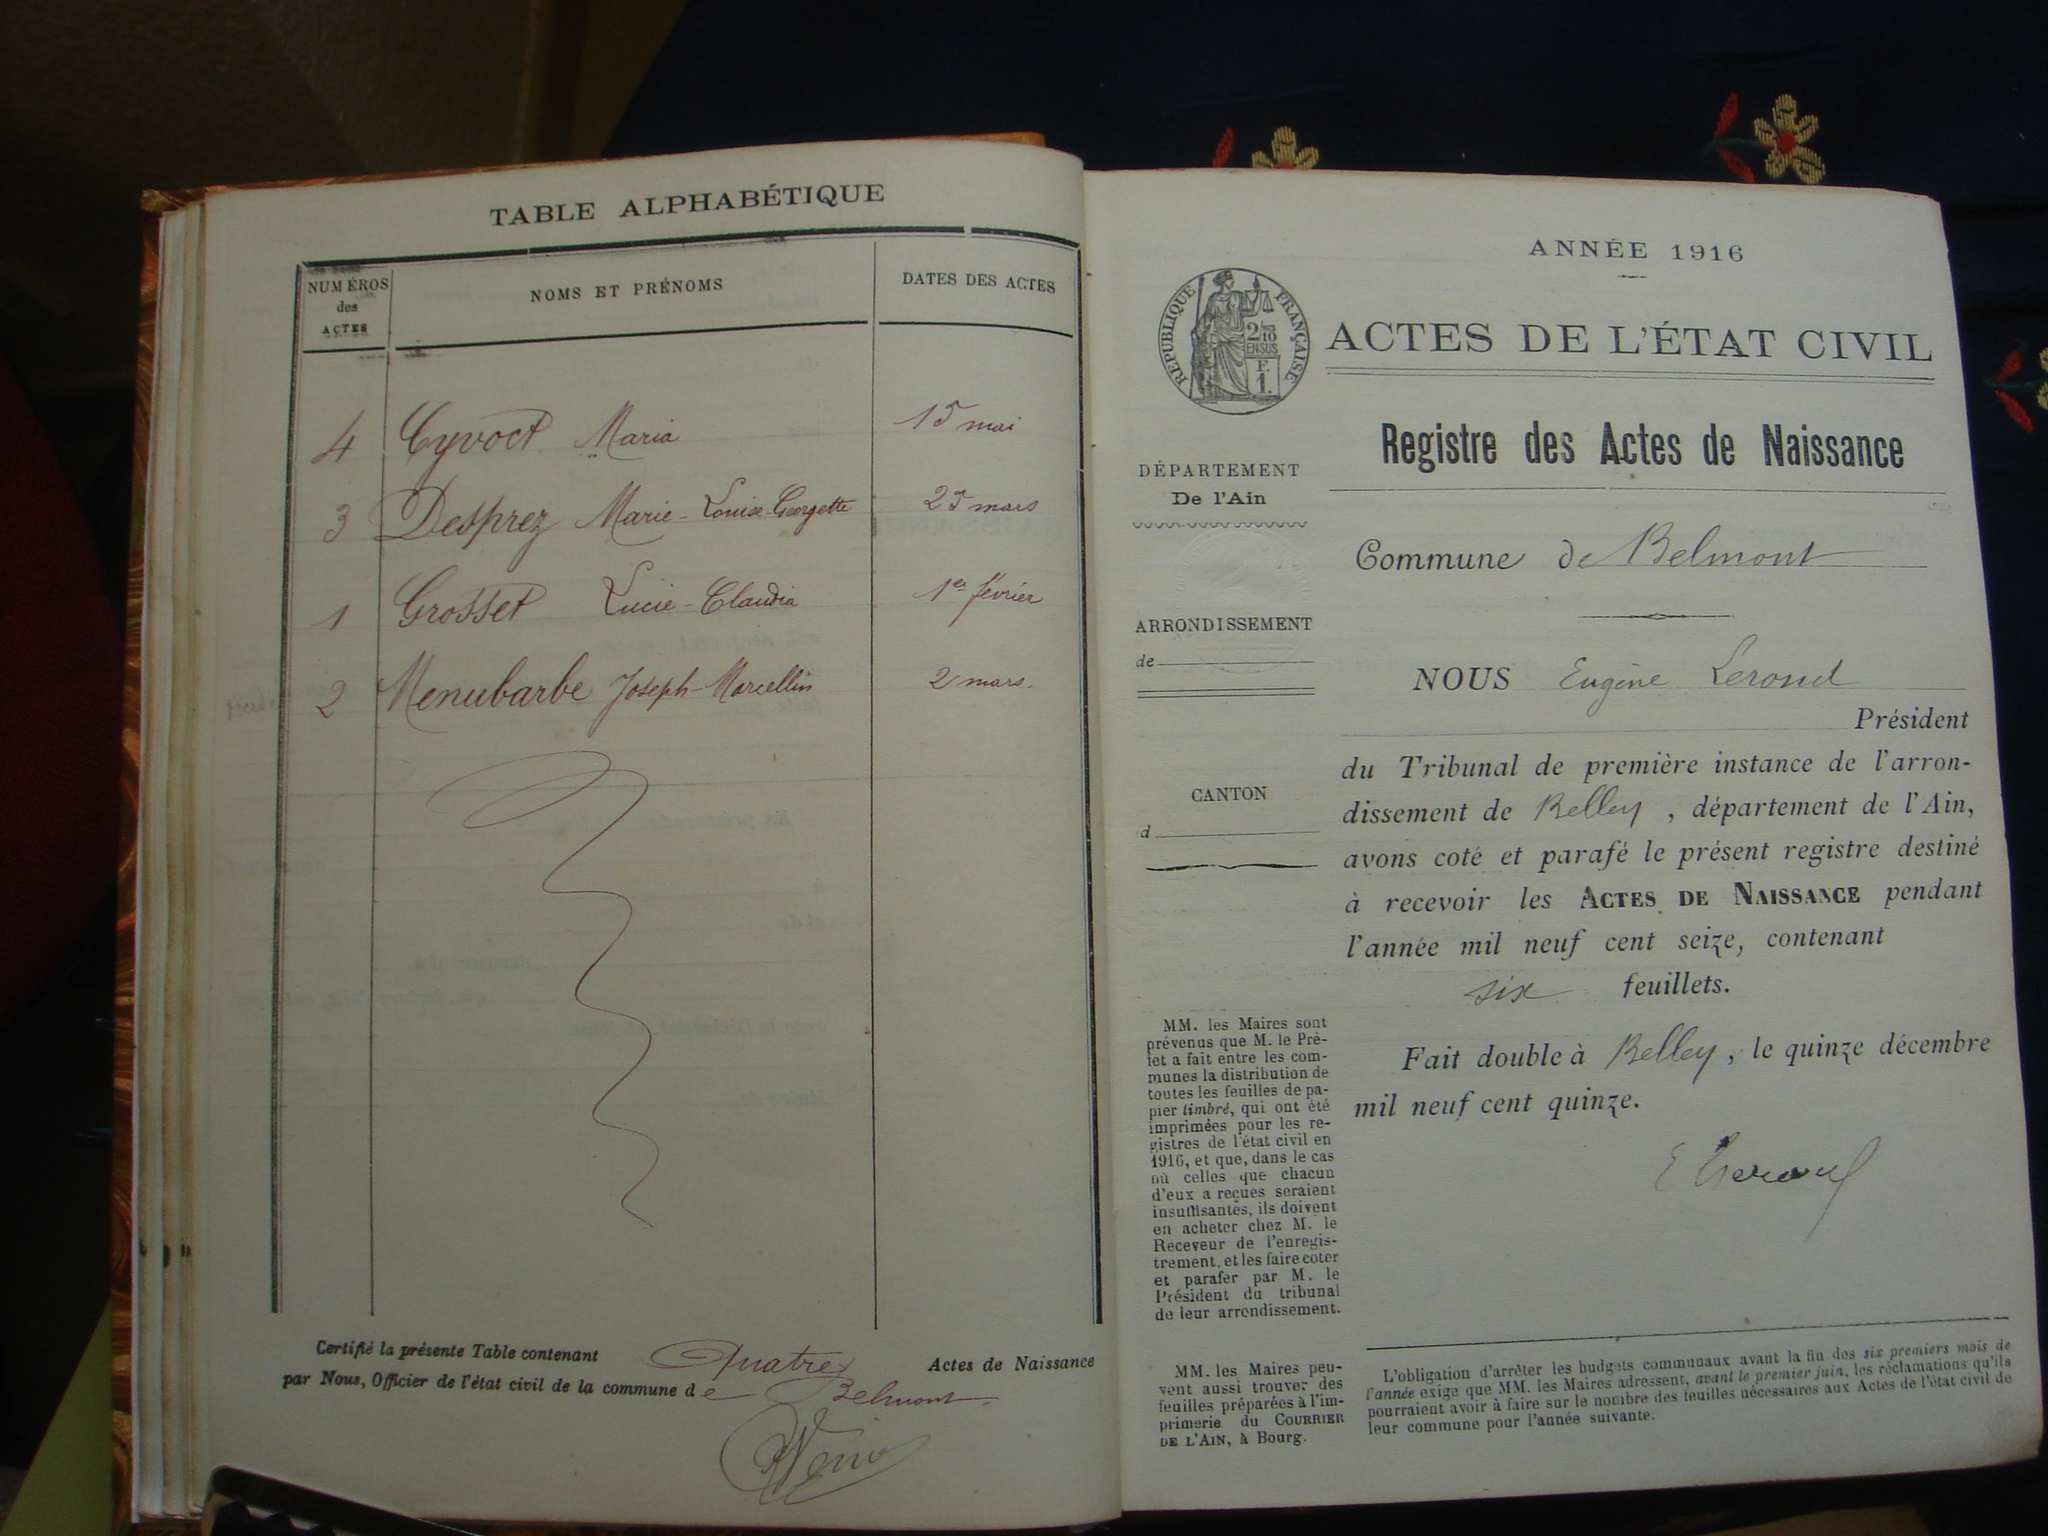 TABLE ALPHABÉTIQUE
NUMÉROS des ACTES
NOMS ET PRÉNOMS
DATES DES ACTES
4 Cyvoct Maria 15 mai
3 Desprez Marie-Louise-Georgette 25 mars
1 Grosset Lucie-Claudia 1er février
2 Menubarbe Joseph-Marcellin 2 mars.
Certifié la présente Table contenant Quatre Actes de Naissance
par Nous, Officier de l'état civil de la commune de Belmont.
ANNÉE 1916
RÉPUBLIQUE FRANÇAISE
2/10
EN SUS
F.
1.
ACTES DE L'ÉTAT CIVIL
Registre des Actes de Naissance
DÉPARTEMENT
De l'Ain
Commune de Belmont
ARRONDISSEMENT
de
NOUS Eugène Lerond
Président
du Tribunal de première instance de l'arron-
dissement de Belley, département de l'Ain,
avons coté et parafé le présent registre destiné
à recevoir les ACTES DE NAISSANCE pendant
l'année mil neuf cent seize, contenant
six feuillets.
CANTON
d
Fait double à Belley, le quinze décembre
mil neuf cent quinze.
MM. les Maires sont
prévenus que M. le Pré-
fet a fait entre les com-
munes la distribution de
toutes les feuilles de pa-
pier timbré, qui ont été
imprimées pour les re-
gistres de l'état civil en
1916, et que, dans le cas
où celles que chacun
d'eux a reçues seraient
insuffisantes, ils doivent
en acheter chez M. le
Receveur de l'enregis-
trement, et les faire coter
et parafer par M. le
Président du tribunal
de leur arrondissement.
MM. les Maires peu-
vent aussi trouver des
feuilles préparées à l'im-
primerie du COURRIER
DE L'AIN, à Bourg.
L'obligation d'arrêter les budgets communaux avant la fin des six premiers mois de
l'année exige que MM. les Maires adressent, avant le premier juin, les réclamations qu'ils
pourraient avoir à faire sur le nombre des feuilles nécessaires aux Actes de l'état civil de
leur commune pour l'année suivante.